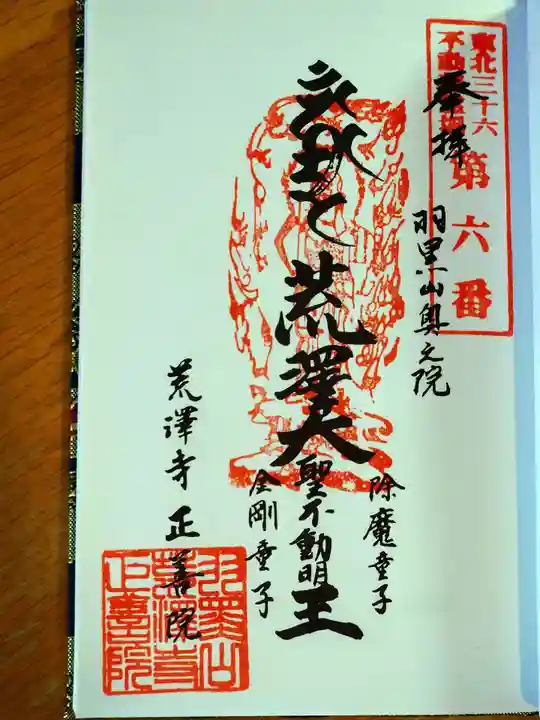 東北三十六
不動尊霊場
第六番
奉拝
羽黒山奥之院
荒澤大
聖不動明
王
除魔童子
金剛童子
荒澤寺正善院
羽黒山
荒澤寺
正善院